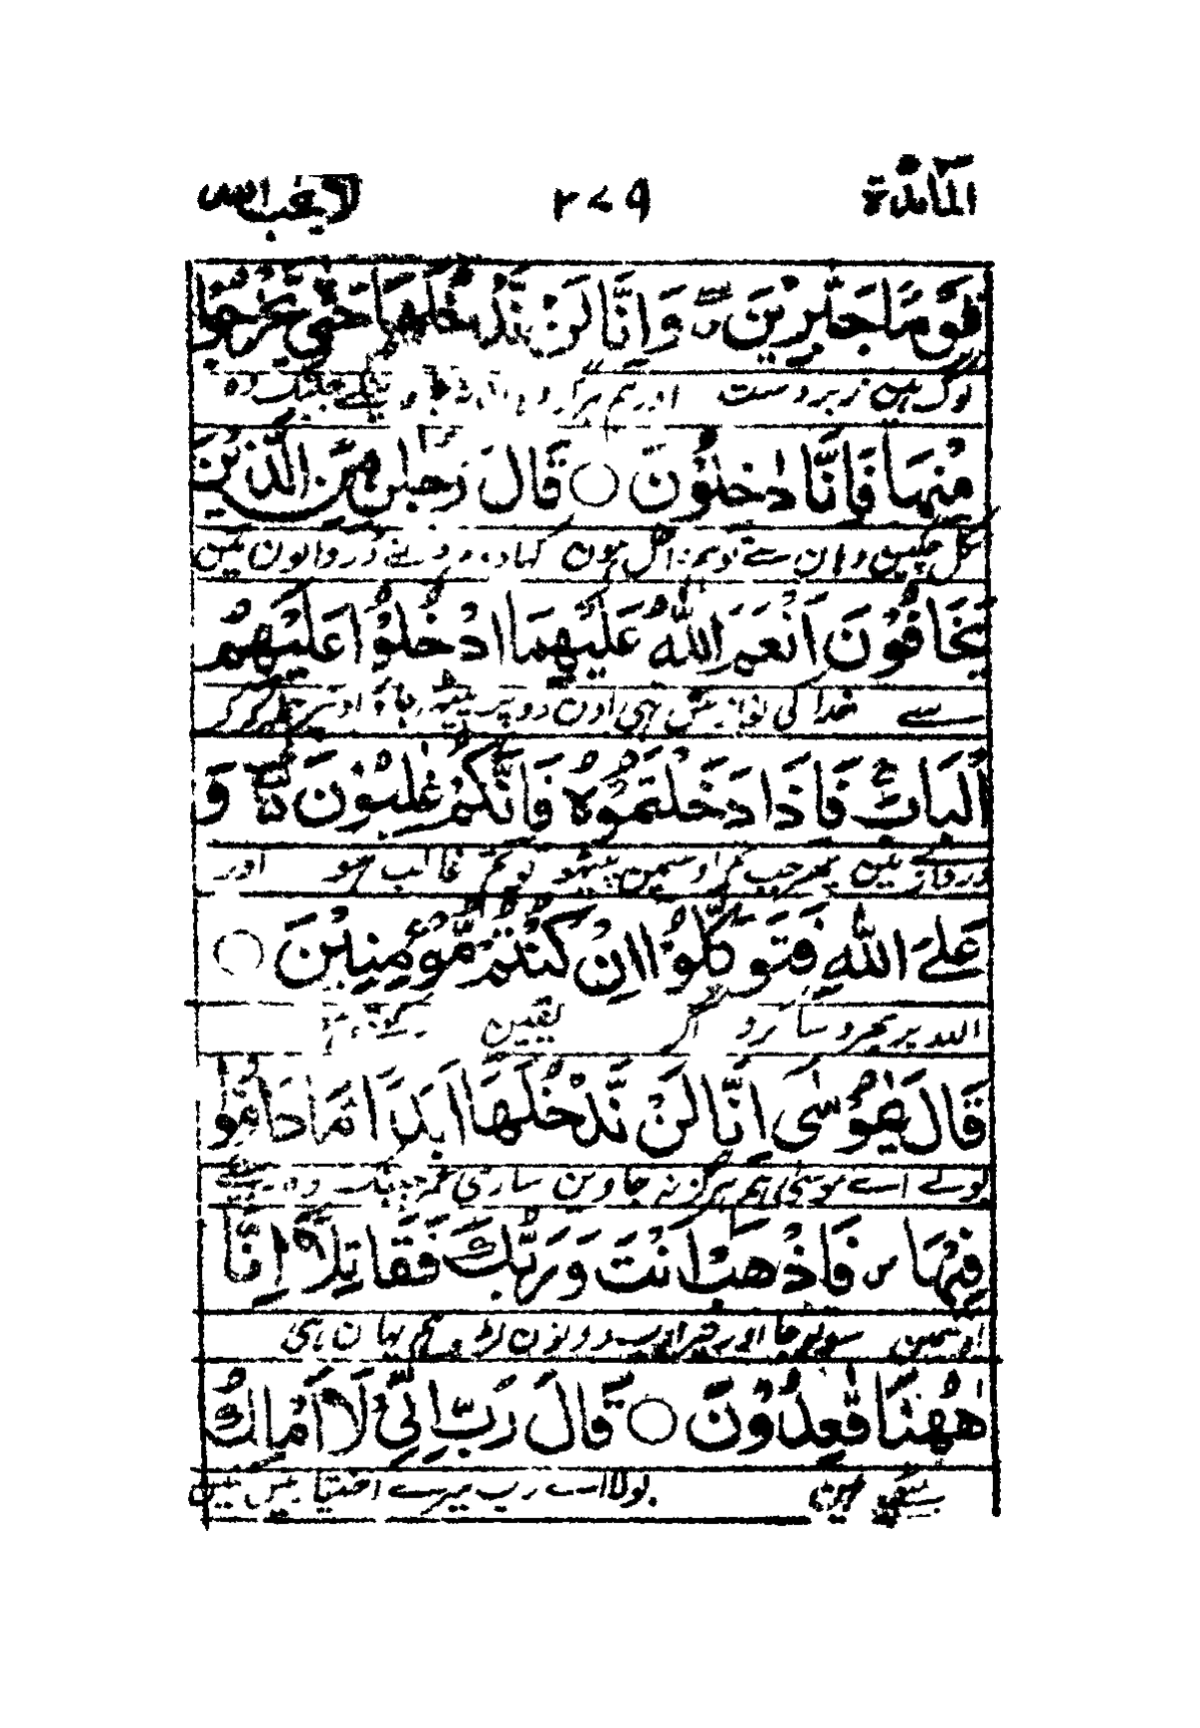 المآئدة ٢٧٩ لا یحب اللہ
قَوْمًا جَبَّارِيْنَ وَاِنَّا لَنْ نَّدْخُلَهَا حَتّٰى يَخْرُجُوْا
لوگ ہیں زبردست اور ہم ہرگز وہ
مِنْهَا فَاِنَّا دٰخِلُوْنَ ○ قَالَ رَجُلٰنِ مِنَ الَّذِيْنَ
نکل چکیں وہان سے تو ہم داخل ہون کہا دو مرد نے ڈر والون مین
يَخَافُوْنَ اَنْعَمَ اللّٰهُ عَلَيْهِمَا ادْخُلُوْا عَلَيْهِمُ
سے خدا کی نوازش تہی اون دو پر پیٹھ جاؤ
الْبَابَ فَاِذَا دَخَلْتُمُوْهُ فَاِنَّكُمْ غٰلِبُوْنَ وَ
دروازے مین پھر جب تم اوسمین پیٹھو تو تم غالب ہو اور
عَلَى اللّٰهِ فَتَوَكَّلُوْٓا اِنْ كُنْتُمْ مُّؤْمِنِيْنَ ○
اللہ پر بھروسا کرو اگر یقین رکھتے ہو
قَالُوْا يٰمُوْسٰٓى اِنَّا لَنْ نَّدْخُلَهَآ اَبَدًا مَّا دَامُوْا
بولے اے موسیٰ ہم ہرگز نہ جاوین ساری عمر جب تک وہ رہینگے
فِيْهَا فَاذْهَبْ اَنْتَ وَرَبُّكَ فَقَاتِلَآ اِنَّا
اوسمین سو تو جا اور تیرا رب دونون لڑو ہم یہان ہی
هٰهُنَا قٰعِدُوْنَ ○ قَالَ رَبِّ اِنِّيْ لَآ اَمْلِكُ
بیٹھے ہین بولا اے رب میرے اختیار مین نہین